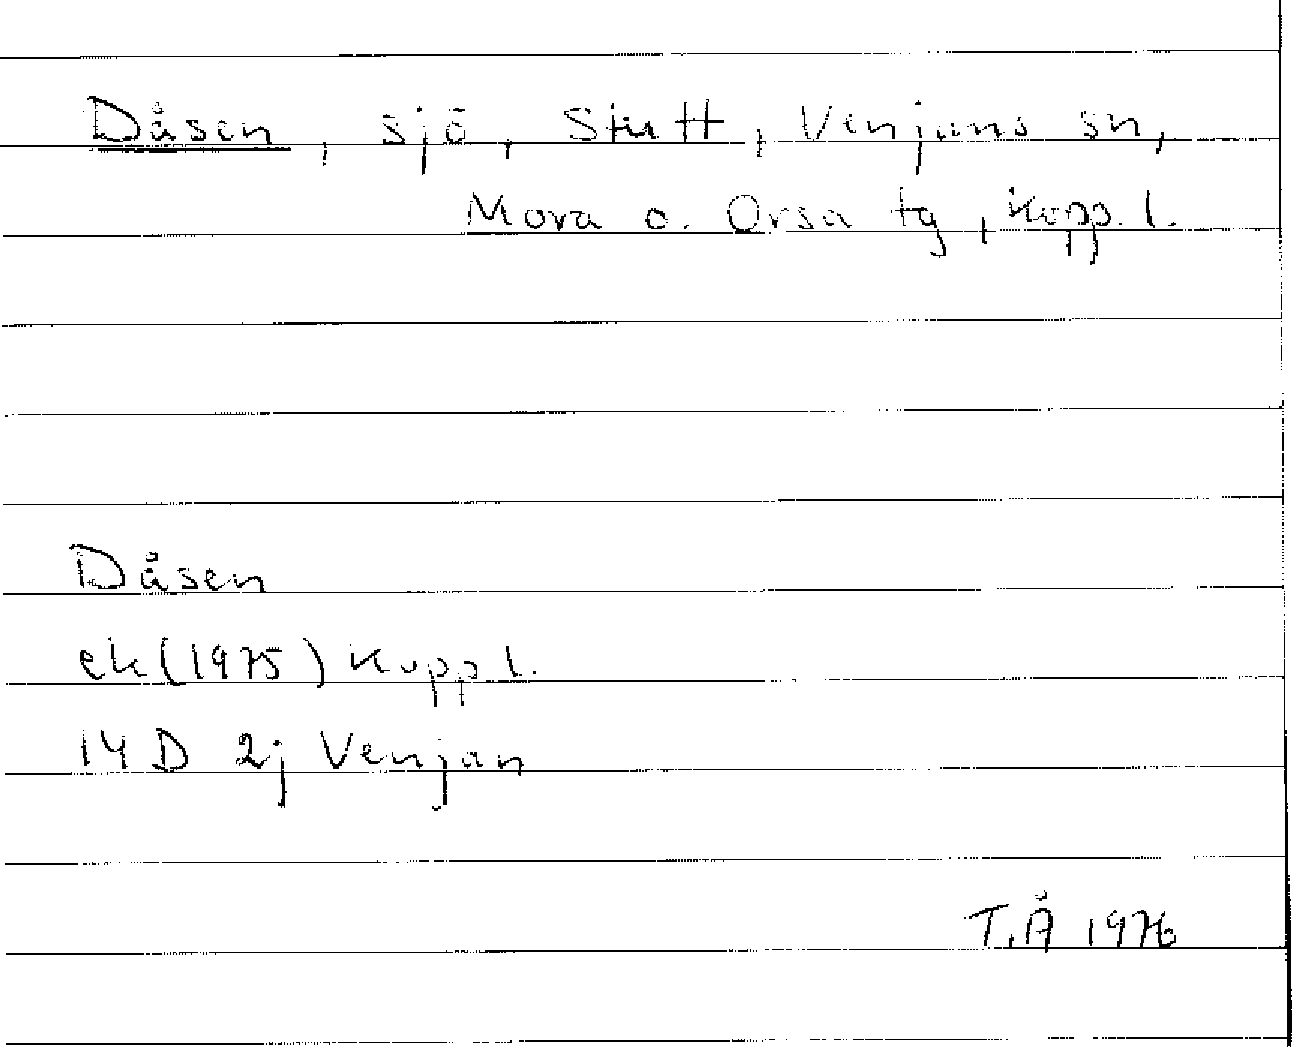 Dåsen, sjö, Stutt, Venjans sn,
Mora o. Orsa tg, Kopp. l.
Dåsen
ek (1975) Kopp l.
14 D 2j Venjan
T.Å 1976